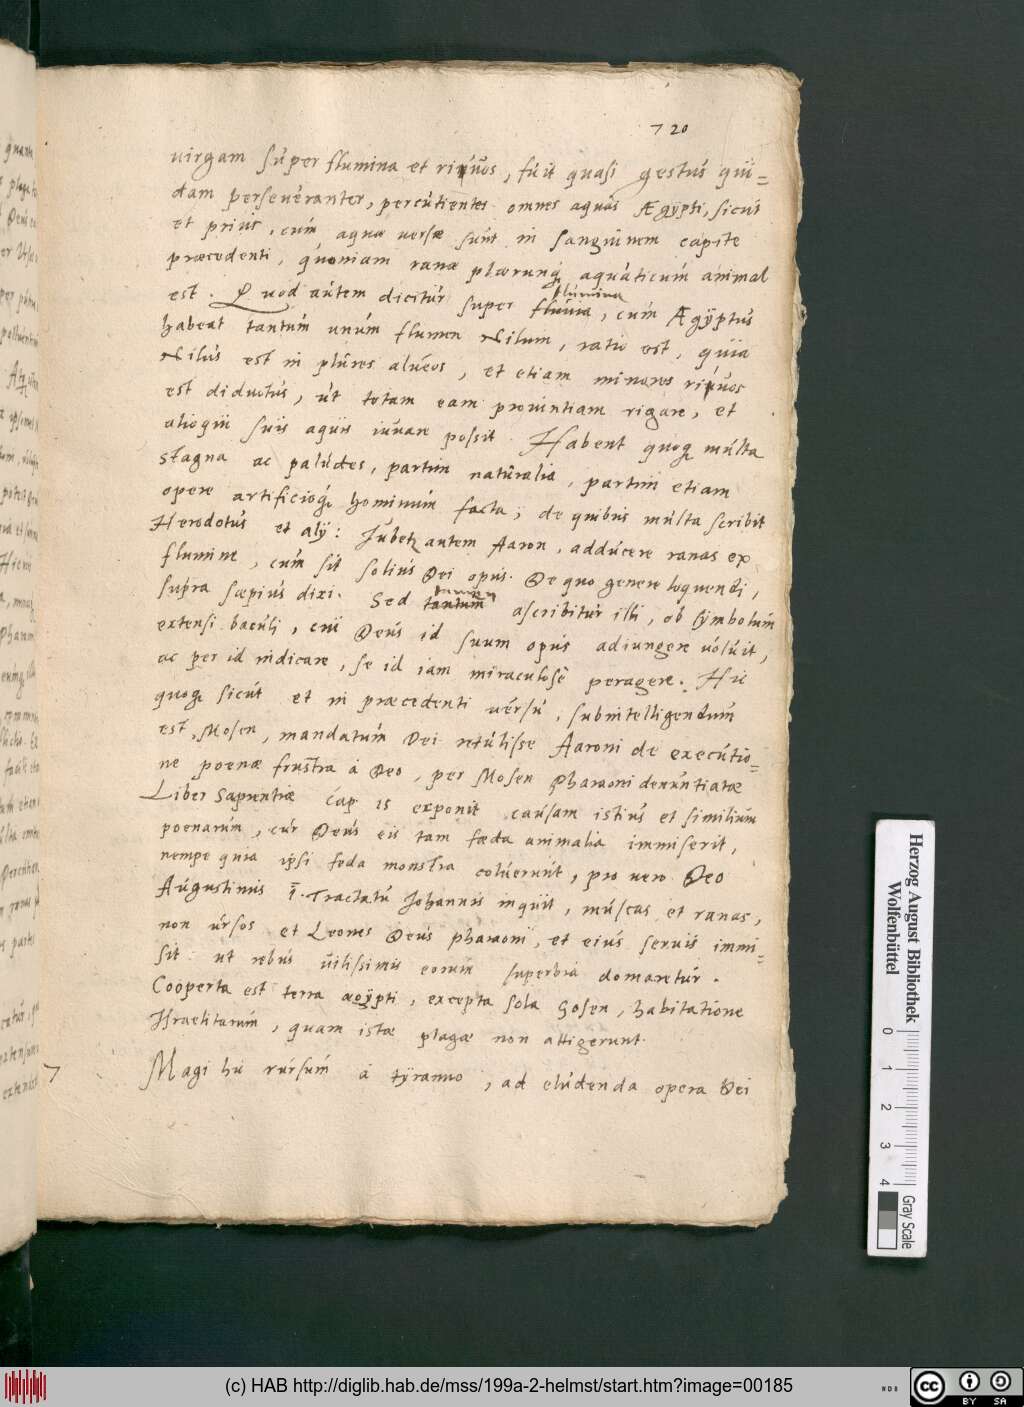 720
uirgam super flumina et riuos, fuit quasi gestus qui=
dam perseueranter, percutientes omnes aquas Ægypti, sicut
et prius, cum aquæ uersæ sunt in sanguinem capite
præcedenti, quoniam ranæ plærunq aquaticum animal
est. Quod autem dicitur super fluuia, cum Ægyptus
flumina
habeat tantum unum flumen Nilum, ratio est, quia
Nilus est in plures alueos, et etiam minores riuos
est diductus, ut totam eam prouintiam rigare, et
alioqui suis aquis iuuare possit. Habent quoq multa
stagna ac paludes, partim naturalia, partim etiam
opere artificioq hominum facta, de quibus multa scribit
Herodotus et alij: Jubet autem Aaron, adducere ranas ex
flumine, cum sit solius Dei opus. De quo genere loquendi,
supra sæpius dixi. Sed tantum ascribitur illi, ob symbolum
extensi baculi, cui Deus id suum opus adiungere uoluit,
ac per id indicare, se id iam miraculosè peragere. Hic
quoq sicut et in præcedenti uersu, subintelligendum
est, Mosen, mandatum Dei retulisse Aaroni de executio=
ne poenæ frustra à Deo, per Mosen Pharaoni denuntiatæ
Liber Sapientiæ cap 15 exponit causam istius et similium
poenarum, cur Deus eis tam fæda animalia immiserit,
nempe quia ipsi feda monstra coluerunt, pro uero Deo
Augustinus I. Tractatu Johannis inquit, muscas et ranas,
non ursos et Leones Deus pharaoni, et eius seruis immi=
sit ut rebus uilissimis eorum superbia domaretur.
Cooperta est terra ægypti, excepta sola Gosen, habitatione
Israelitarum, quam istæ plagæ non attigerunt.
7 Magi hic rursum à tyranno, ad eludenda opera Dei
Herzog August Bibliothek
Wolfenbüttel
0 1 2 3 4
Gray Scale
(c) HAB http://diglib.hab.de/mss/199a-2-helmst/start.htm?image=00185
NDB
cc BY SA